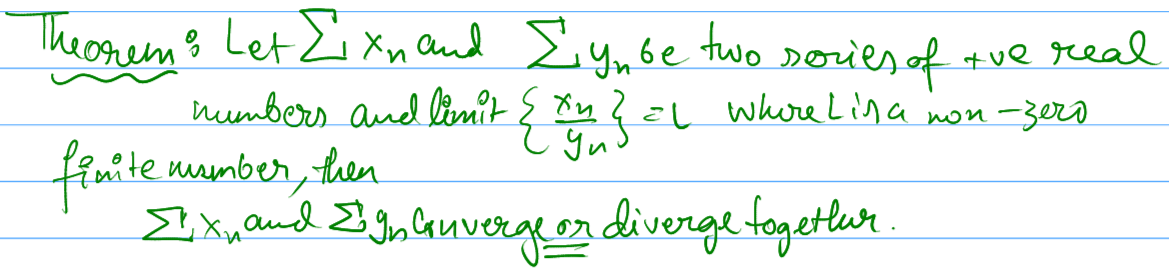 Theorem: Let ∑ xn and ∑ yn be two series of +ve real
numbers and limit {xn/yn} = L where L is a non-zero
finite number, then
∑ xn and ∑ yn Converge or diverge together.